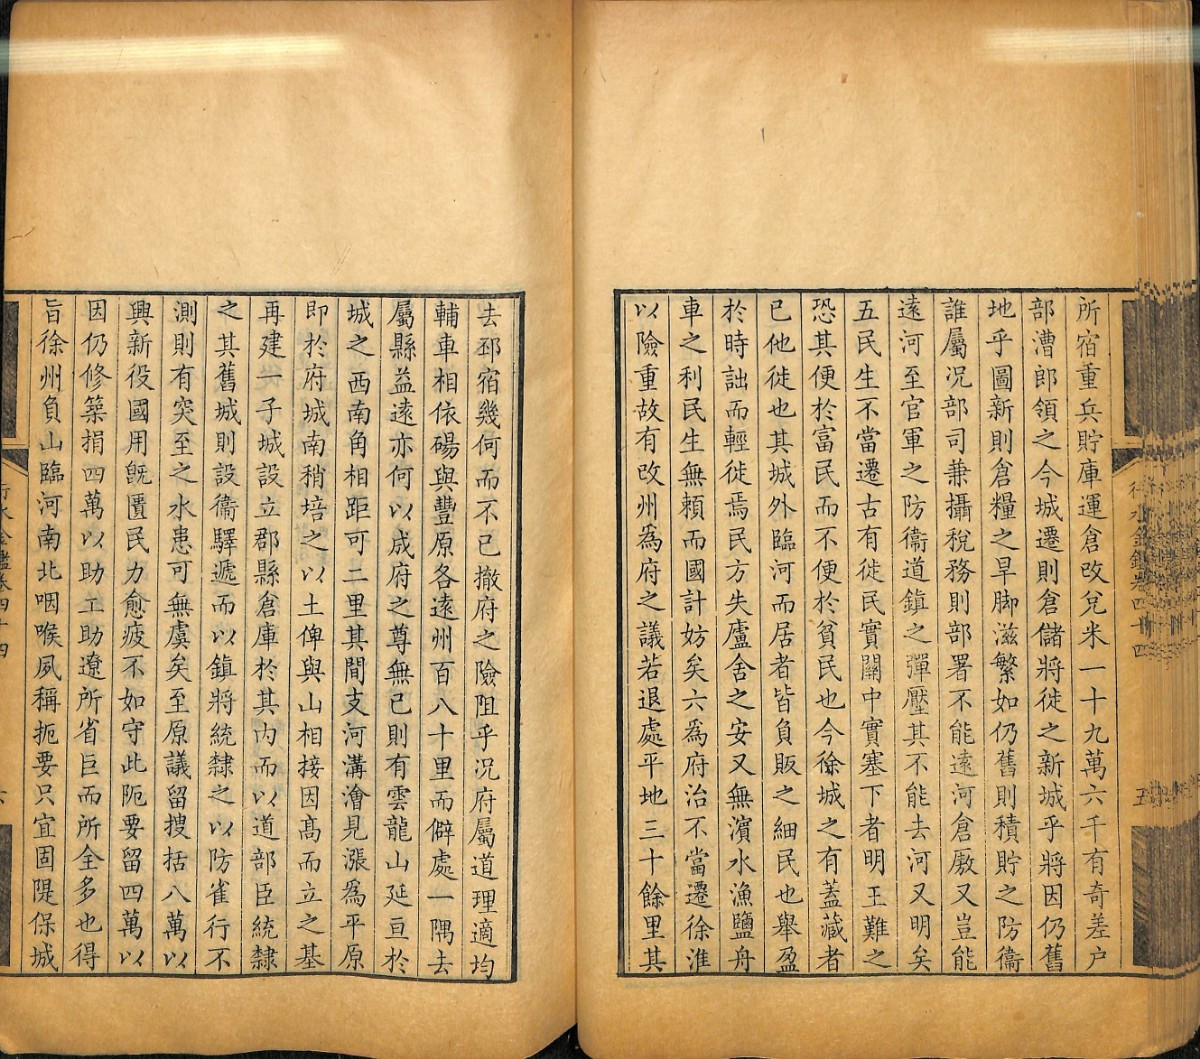 所宿重兵貯庫運倉改兌米一十九萬六千有奇差户
部漕郎領之今城遷則倉儲將徙之新城乎將因仍舊
地乎圖新則倉糧之旱脚滋繁如仍舊則積貯之防衞
誰屬况部司兼攝稅務則部署不能遠河倉厫又豈能
遠河至官軍之防衞道鎮之彈壓其不能去河又明矣
五民生不當遷古有徙民實關中實塞下者明王難之
恐其便於富民而不便於貧民也今徐城之有蓋藏者
已他徙也其城外臨河而居者皆負販之細民也舉盈
於時詘而輕徙焉民方失廬舍之安又無濱水漁鹽舟
車之利民生無賴而國計妨矣六爲府治不當遷徐淮
以險重故有改州爲府之議若退處平地三十餘里其
行水金鑑卷四十四
五
去邳宿幾何而不已撤府之險阻乎況府屬道理適均
輔車相依碭與豐原各遠州百八十里而僻處一隅去
屬縣益遠亦何以成府之尊無已則有雲龍山延亘於
城之西南角相距可二里其間支河溝澮見漲爲平原
即於府城南稍培之以土俾與山相接因髙而立之基
再建一子城設立郡縣倉庫於其内而以道部臣統隸
之其舊城則設衞驛遞而以鎮將統隸之以防雀行不
測則有突至之水患可無虞矣至原議留搜括八萬以
興新役國用旣匱民力愈疲不如守此阨要留四萬以
因仍修築捐四萬以助工助遼所省巨而所全多也得
旨徐州負山臨河南北咽喉夙稱扼要只宜固隄保城
行水金鑑卷四十四
六